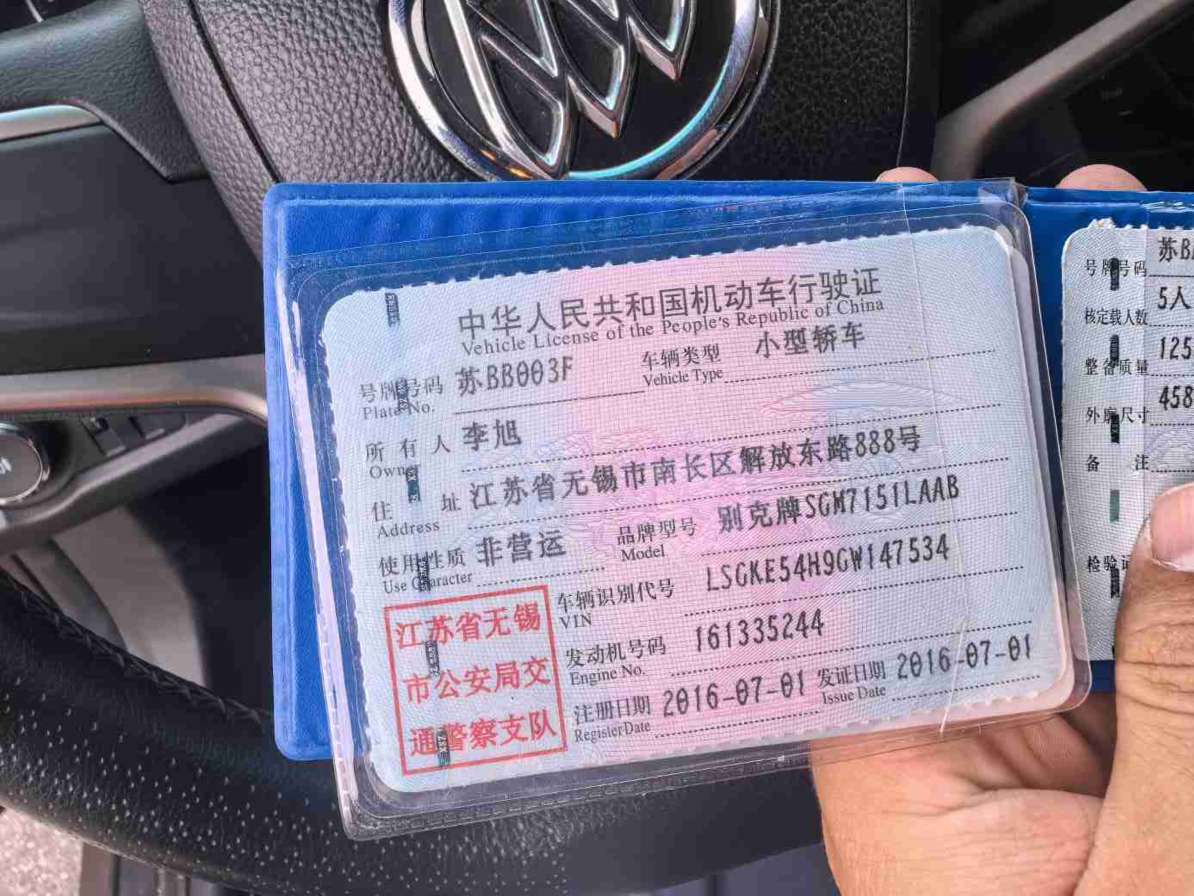 中华人民共和国机动车行驶证
Vehicle License of the People's Republic of China
号牌号码 苏BB003F 车辆类型 小型轿车
Plate No. Vehicle Type
所有人 李旭
Owner
住址 江苏省无锡市南长区解放东路888号
Address
使用性质 非营运 品牌型号 别克牌SGM7151LAAB
Use Character Model
江苏省无锡
市公安局交
通警察支队
车辆识别代号 LSGKE54H9GW147534
VIN
发动机号码 161335244
Engine No.
注册日期 2016-07-01 发证日期 2016-07-01
Register Date Issue Date
号牌号码 苏B
核定载人数 5人
整备质量 125
外廓尺寸 458
备注
检验